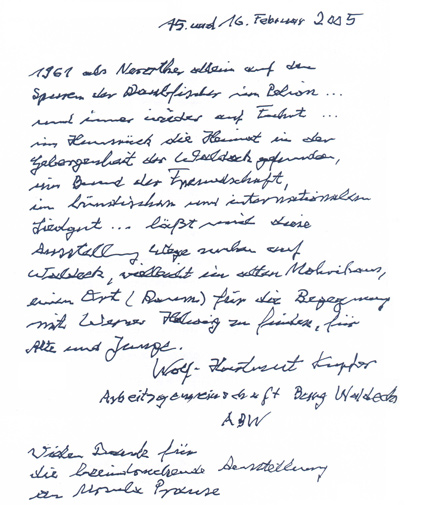 15. und 16. Februar 2005
1961 als Nerother allein auf den
Spuren der Raubfischer im Pelion ...
und immer wieder auf Fahrt ...
im Hunsrück die Heimat in der
Geborgenheit der Waldeck gefunden,
im Bund der Freundschaft,
im bündischen und internationalen
Liedgut ... läßt mich diese
Ausstellung Wege suchen auf
Waldeck, vielleicht im alten Mohrihaus,
einen Ort (Raum) für die Begegnung
mit Werner Helwig zu finden, für
Alte und Junge.
Wolf-Hartmut
Arbeitsgemeinschaft Burg Waldeck
ABW
Vielen Dank für
die beeindruckende Ausstellung
an Ursula Prause